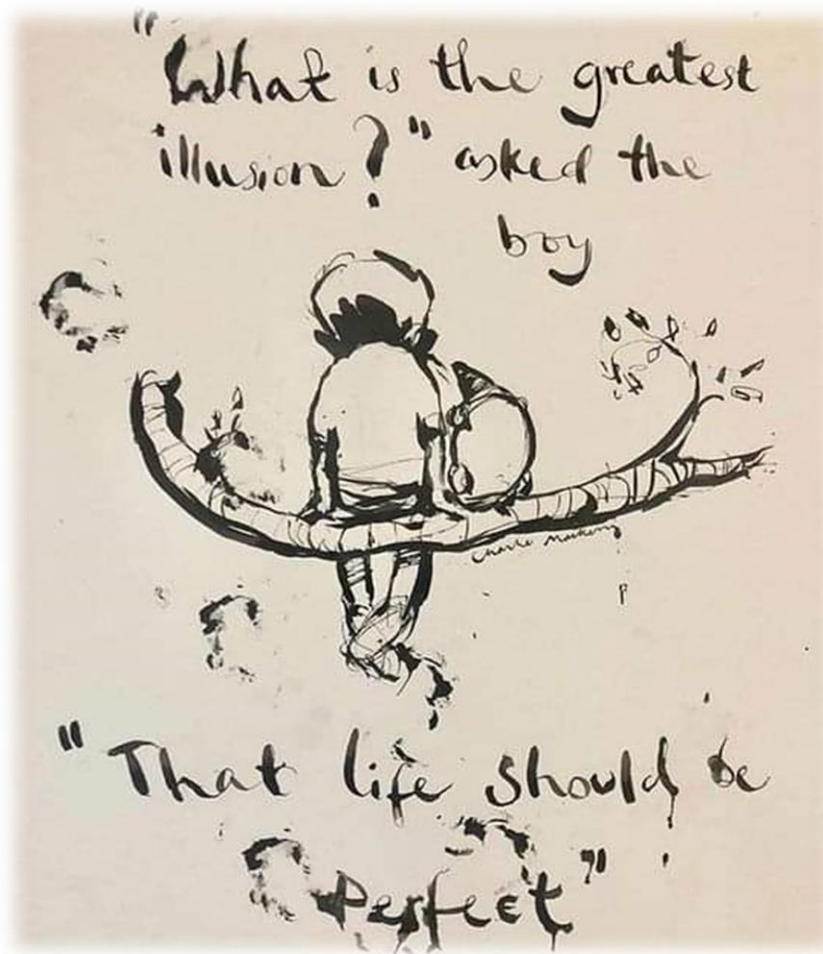 "What is the greatest
illusion?" asked the
boy
Charlie Mackesy
"That life should be
Perfect"